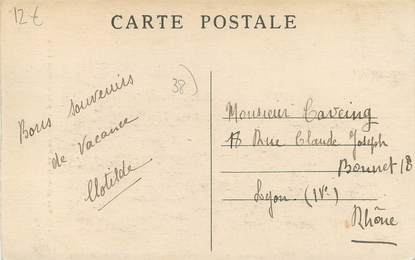 12€
CARTE POSTALE
38)
Bons souvenirs
de vacance
Clotilde
Monsieur Caveing
18 Rue Claude Joseph
Bonnet 18
Lyon. (IVe)
Rhône